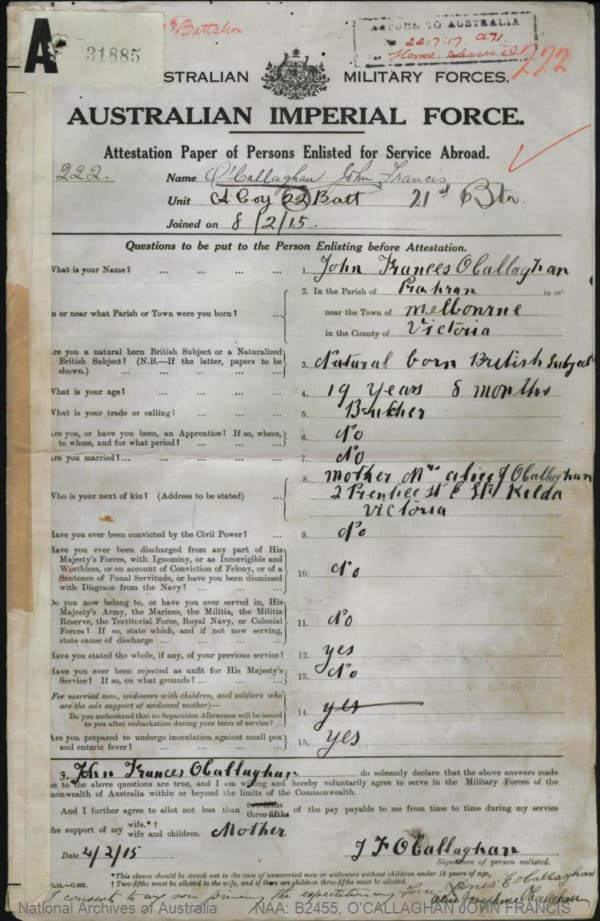 Battalion
A
31885
RETURN TO AUSTRALIA
22.7.17
222
STRALIAN MILITARY FORCES.
AUSTRALIAN IMPERIAL FORCE.
Attestation Paper of Persons Enlisted for Service Abroad.
222. Name O'Callaghan John Francis
Unit D Coy 22 Batt 21st Btn
Joined on 8/2/15.
Questions to be put to the Person Enlisting before Attestation.
What is your Name? ... ... ... ... 1. John Frances OCallaghan
2. In the Parish of Prahran in or
n or near what Parish or Town were you born? ... near the Town of Melbourne
in the County of Victoria
re you a natural born British Subject or a Naturalized
British Subject? (N.B.—If the latter, papers to be 3. Natural born British Subject
shown.) ... ... ... ... ...
What is your age? ... ... ... ... 4. 19 years 8 months
What is your trade or calling? ... ... ... 5. Butcher
re you, or have you been, an Apprentice? If so, where, 6. No
to whom, and for what period? ... ... ...
re you married? ... ... ... ... 7. No
8. Mother Mrs Alice J OCallaghan
Who is your next of kin? (Address to be stated) ... 2 Prentice St E St Kilda
Victoria
ave you ever been convicted by the Civil Power? ... 9. No
Have you ever been discharged from any part of His
Majesty's Forces, with Ignominy, or as Incorrigible and
Worthless, or on account of Conviction of Felony, or of a 10. No
Sentence of Penal Servitude, or have you been dismissed
with Disgrace from the Navy? ... ... ...
Do you now belong to, or have you ever served in, His
Majesty's Army, the Marines, the Militia, the Militia
Reserve, the Territorial Force, Royal Navy, or Colonial 11. No
Forces? If so, state which, and if not now serving,
state cause of discharge ... ... ... ...
Have you stated the whole, if any, of your previous service? 12. yes
Have you ever been rejected as unfit for His Majesty's 13. No
Service? If so, on what grounds? ... ... ...
For married men, widowers with children, and soldiers who
are the sole support of widowed mother)—
Do you understand that no Separation Allowance will be issued 14. yes
to you after embarkation during your term of service? ...
Are you prepared to undergo inoculation against small pox 15. Yes
and enteric fever? ... ... ... ...
I, John Frances OCallaghan do solemnly declare that the above answers made
me to the above questions are true, and I am willing and hereby voluntarily agree to serve in the Military Forces of the
mmonwealth of Australia within or beyond the limits of the Commonwealth.
And I further agree to allot not less than two-fifths three-fifths of the pay payable to me from time to time during my service
the support of my wife.*† wife and children. Mother
Date 4/2/15 J F OCallaghan
Signature of person enlisted.
*This clause should be struck out in the case of unmarried men or widowers without children under 18 years of age.
† Two-fifths must be allotted to the wife, and if there are children three-fifths must be allotted.
I consent to my son joining the expedition
National Archives of Australia NAA: B2455, O'CALLAGHAN JOHN FRANCIS